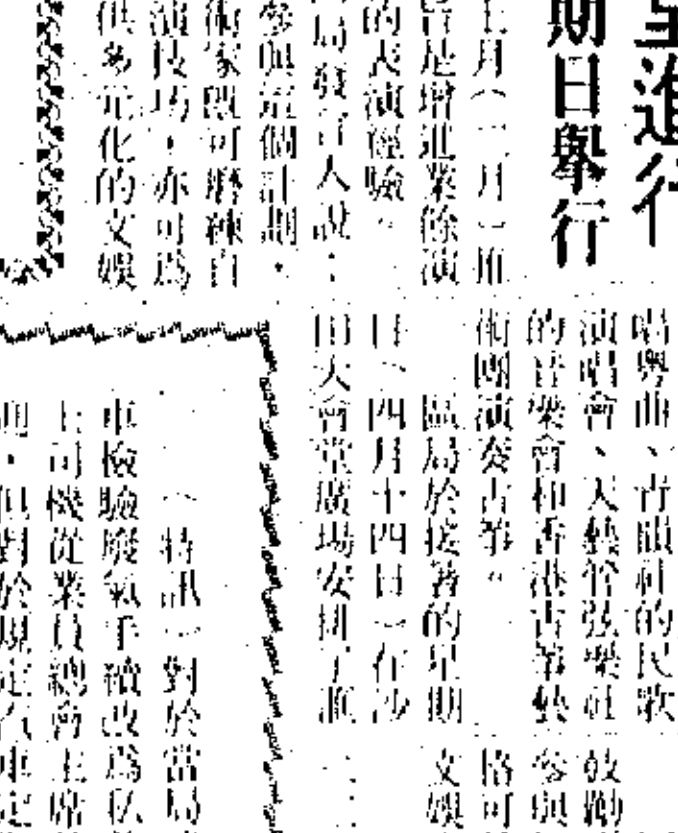 進行
期日舉行
上月（二月）推
旨是增進業餘演
的表演經驗。
局發言人說：
參與這個計劃，
術家既可磨練自
演技巧，亦可為
供多元化的文娛
唱粵曲、青韻社的民歌
演唱會、天藝管弦樂社
的音樂會和香港古箏藝
術團演奏古箏。
區局於接著的星期
日（四月十四日）在沙
田大會堂廣場安排了
效勸
參與
格可
文娛
（特訊）對於當局
車檢驗廢氣手續改為私
上司機從業員總會主席
迎，但對於規定